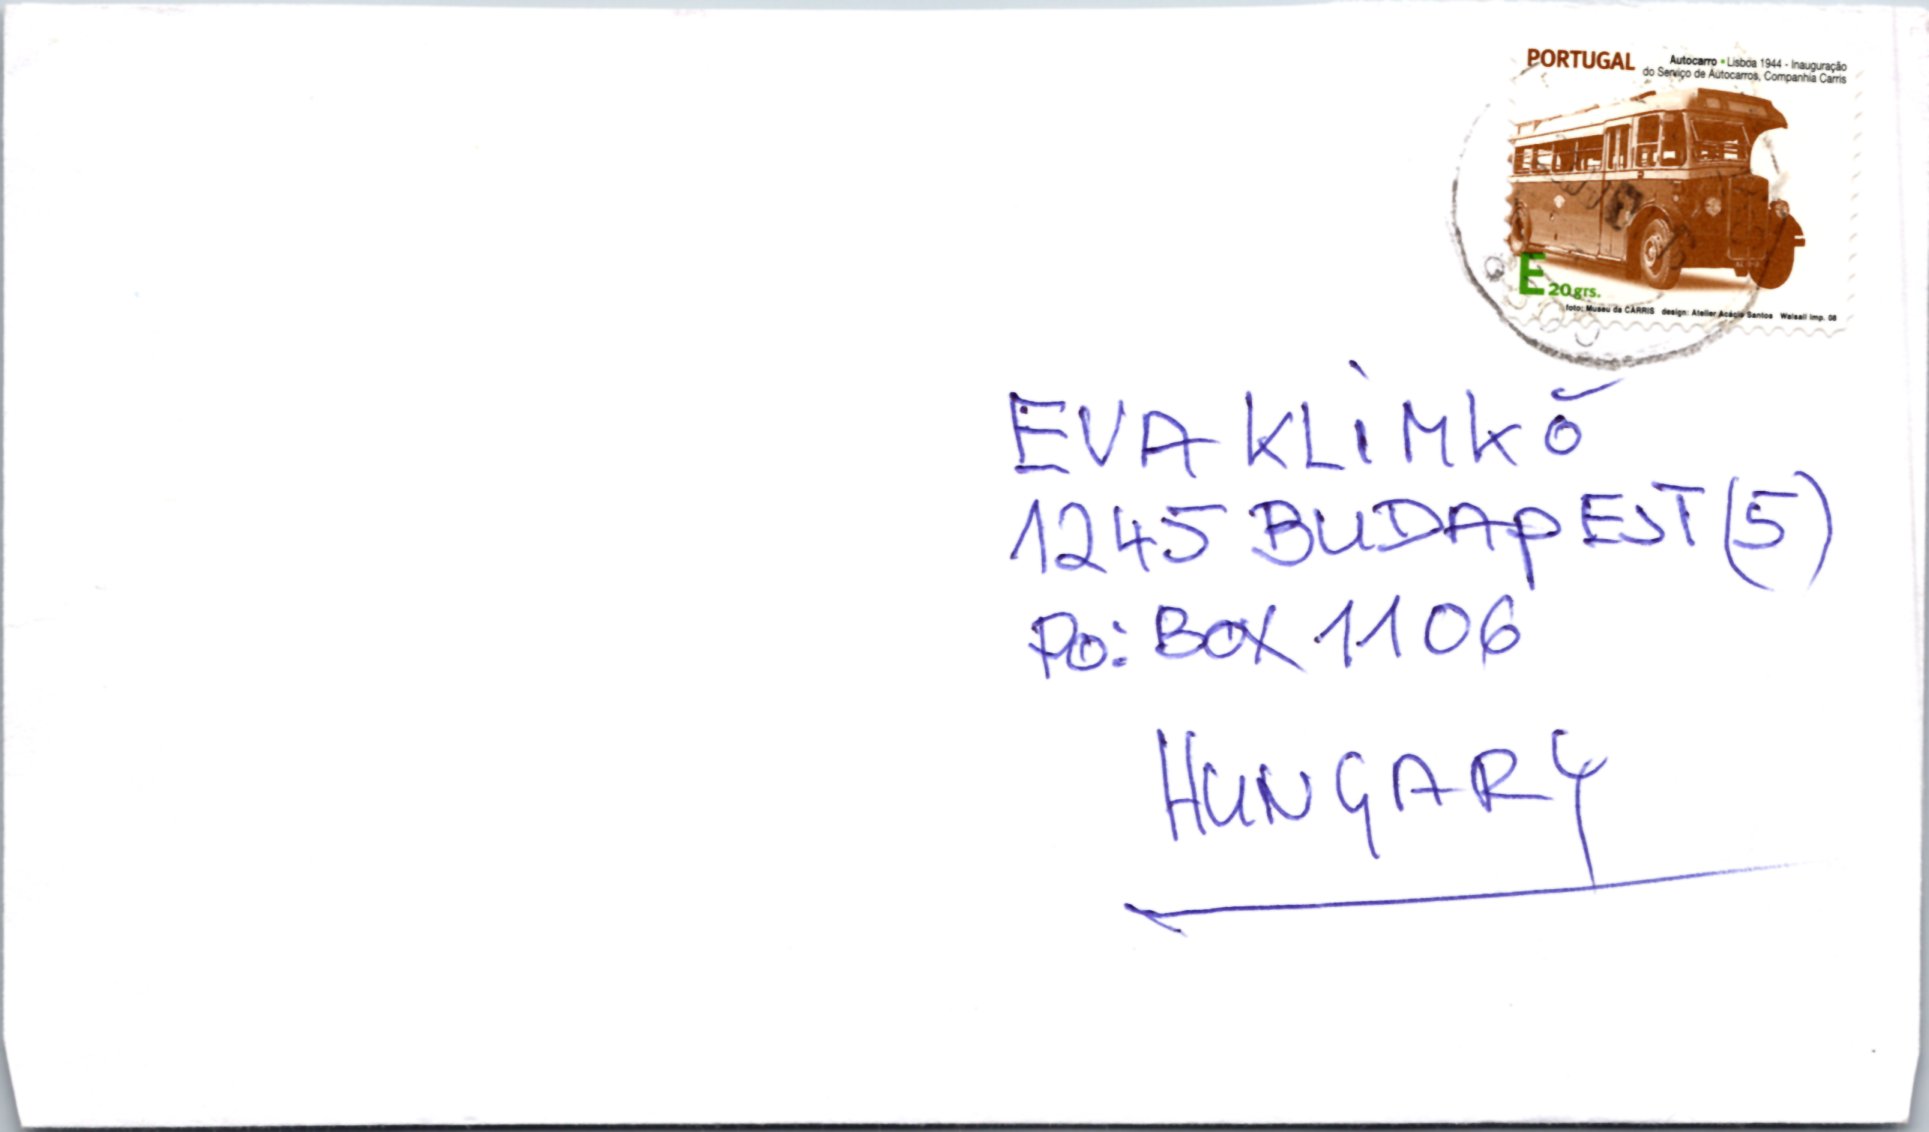 PORTUGAL
Autocarro • Lisboa 1944 - Inauguração
do Serviço de Autocarros, Companhia Carris
E 20 grs.
foto: Museu da CARRIS design: Atelier Acácio Santos Walsall Imp. 08
EVA KLIMKÓ
1245 BUDAPEST (5)
PO: BOX 1106
HUNGARY